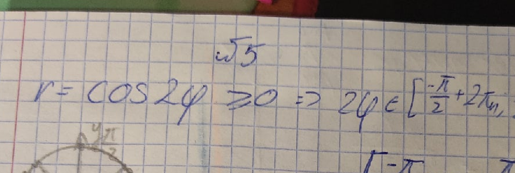 √5
r = cos2φ ≥ 0 => 2φ ∈ [-π/2 + 2πn,
y π/2
[-π π